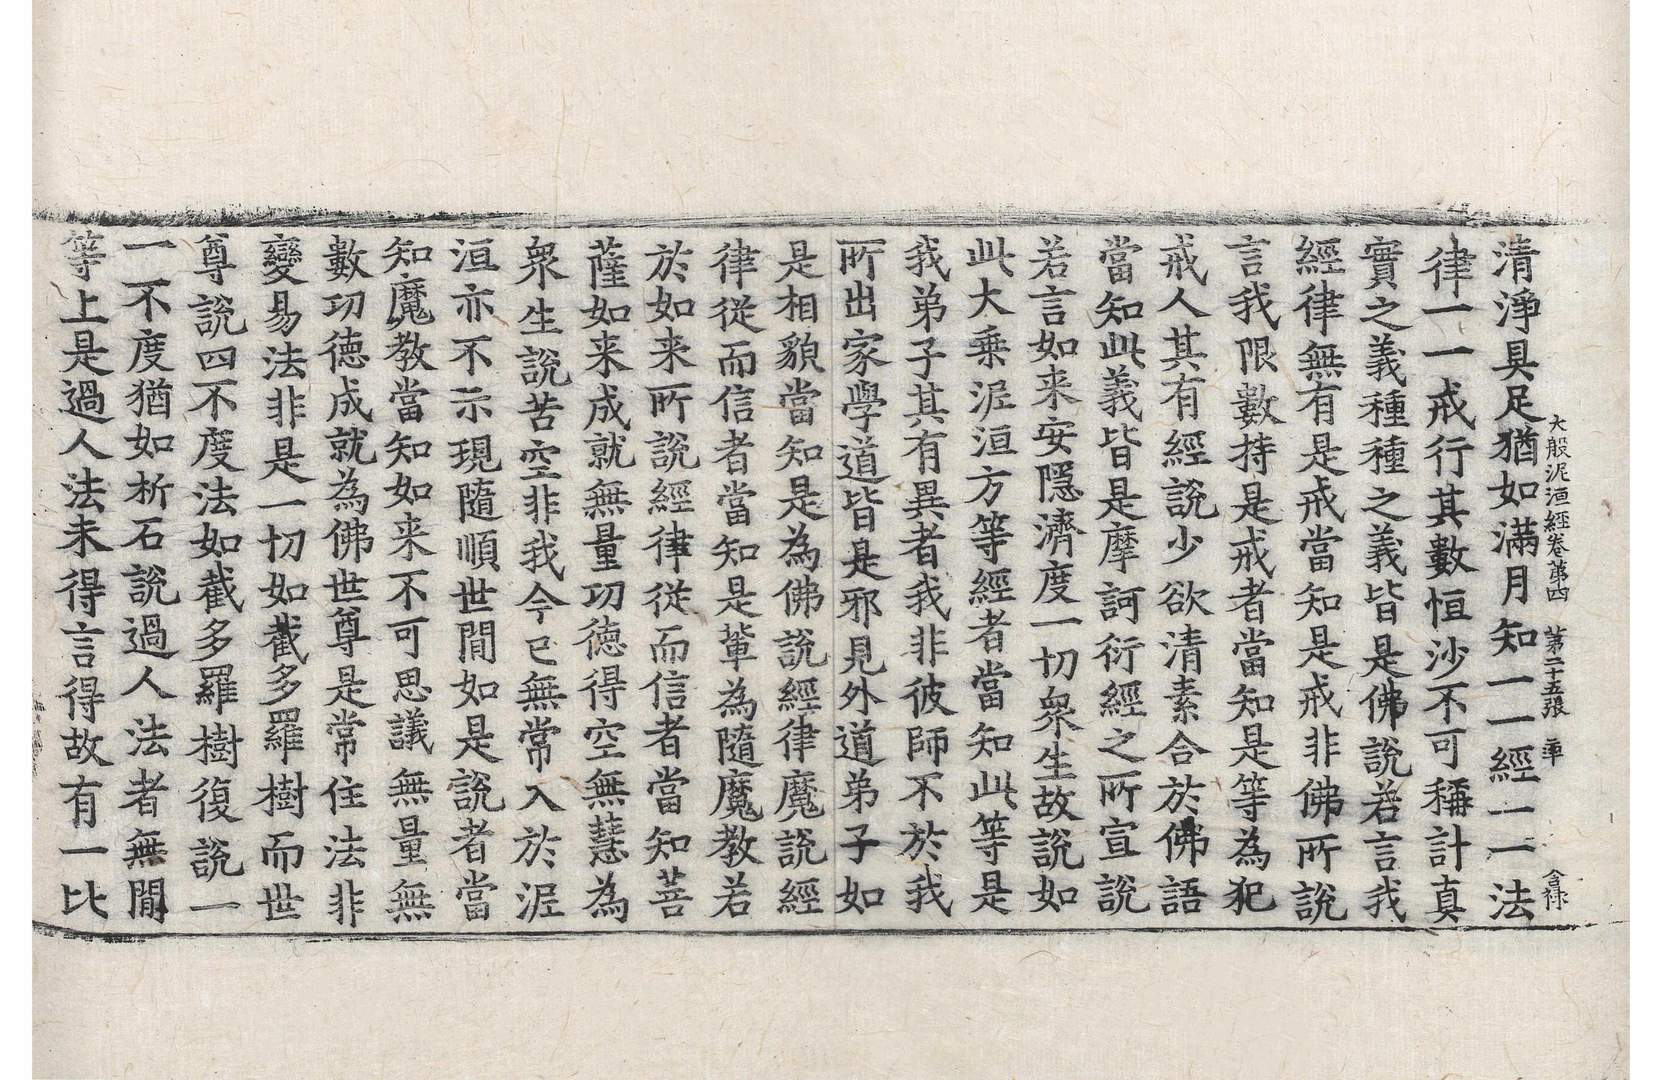 大般泥洹經卷第四 第二十五張
清淨具足猶如滿月知一一經一一法
律一一戒行其數恒沙不可稱計真
實之義種種之義皆是佛說若言我
經律無有是戒當知是戒非佛所說
言我限數持是戒者當知是等為犯
戒人其有經說少欲清素合於佛語
當知此義皆是摩訶衍經之所宣說
若言如来安隱濟度一切衆生故說如
此大乗泥洹方等經者當知此等是
我弟子其有異者我非彼師不於我
所出家學道皆是邪見外道弟子如
是相貌當知是為佛說經律魔說經
律從而信者當知是輩為隨魔教若
於如来所說經律從而信者當知菩
薩如来成就無量功德得空無慧為
衆生說苦空非我今已無常入於泥
洹亦不示現隨順世閒如是說者當
知魔教當知如来不可思議無量無
數功德成就為佛世尊是常住法非
變易法非是一切如截多羅樹而世
尊說四不度法如截多羅樹復說一
一不度猶如析石說過人法者無閒
等上是過人法未得言得故有一比